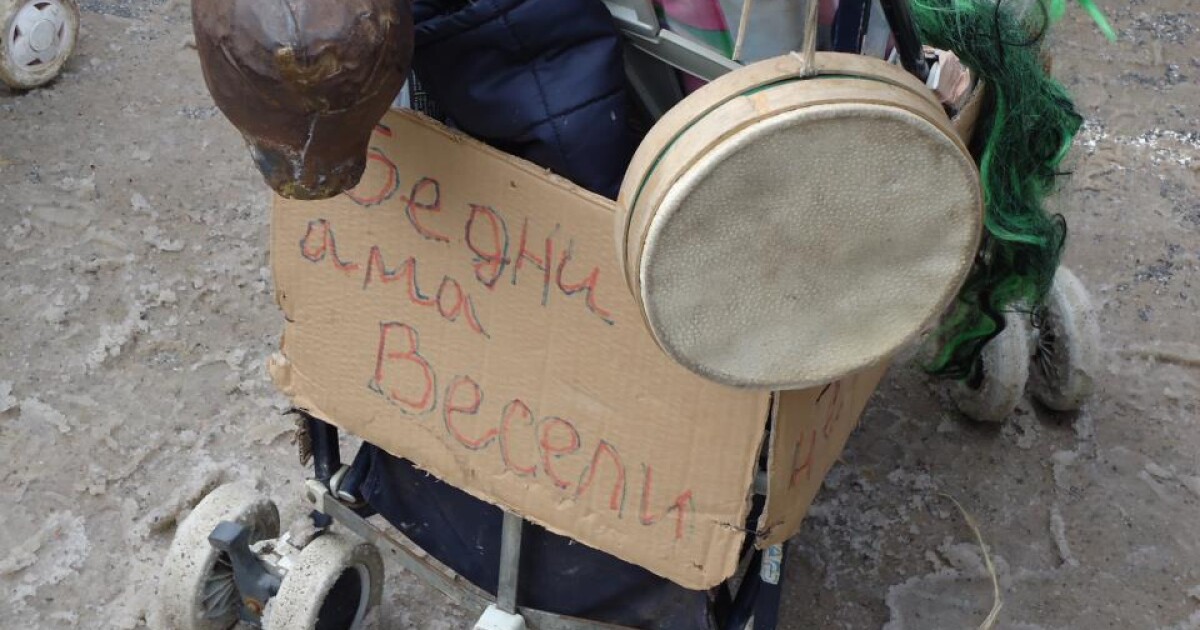 Бедни
ама
Весели